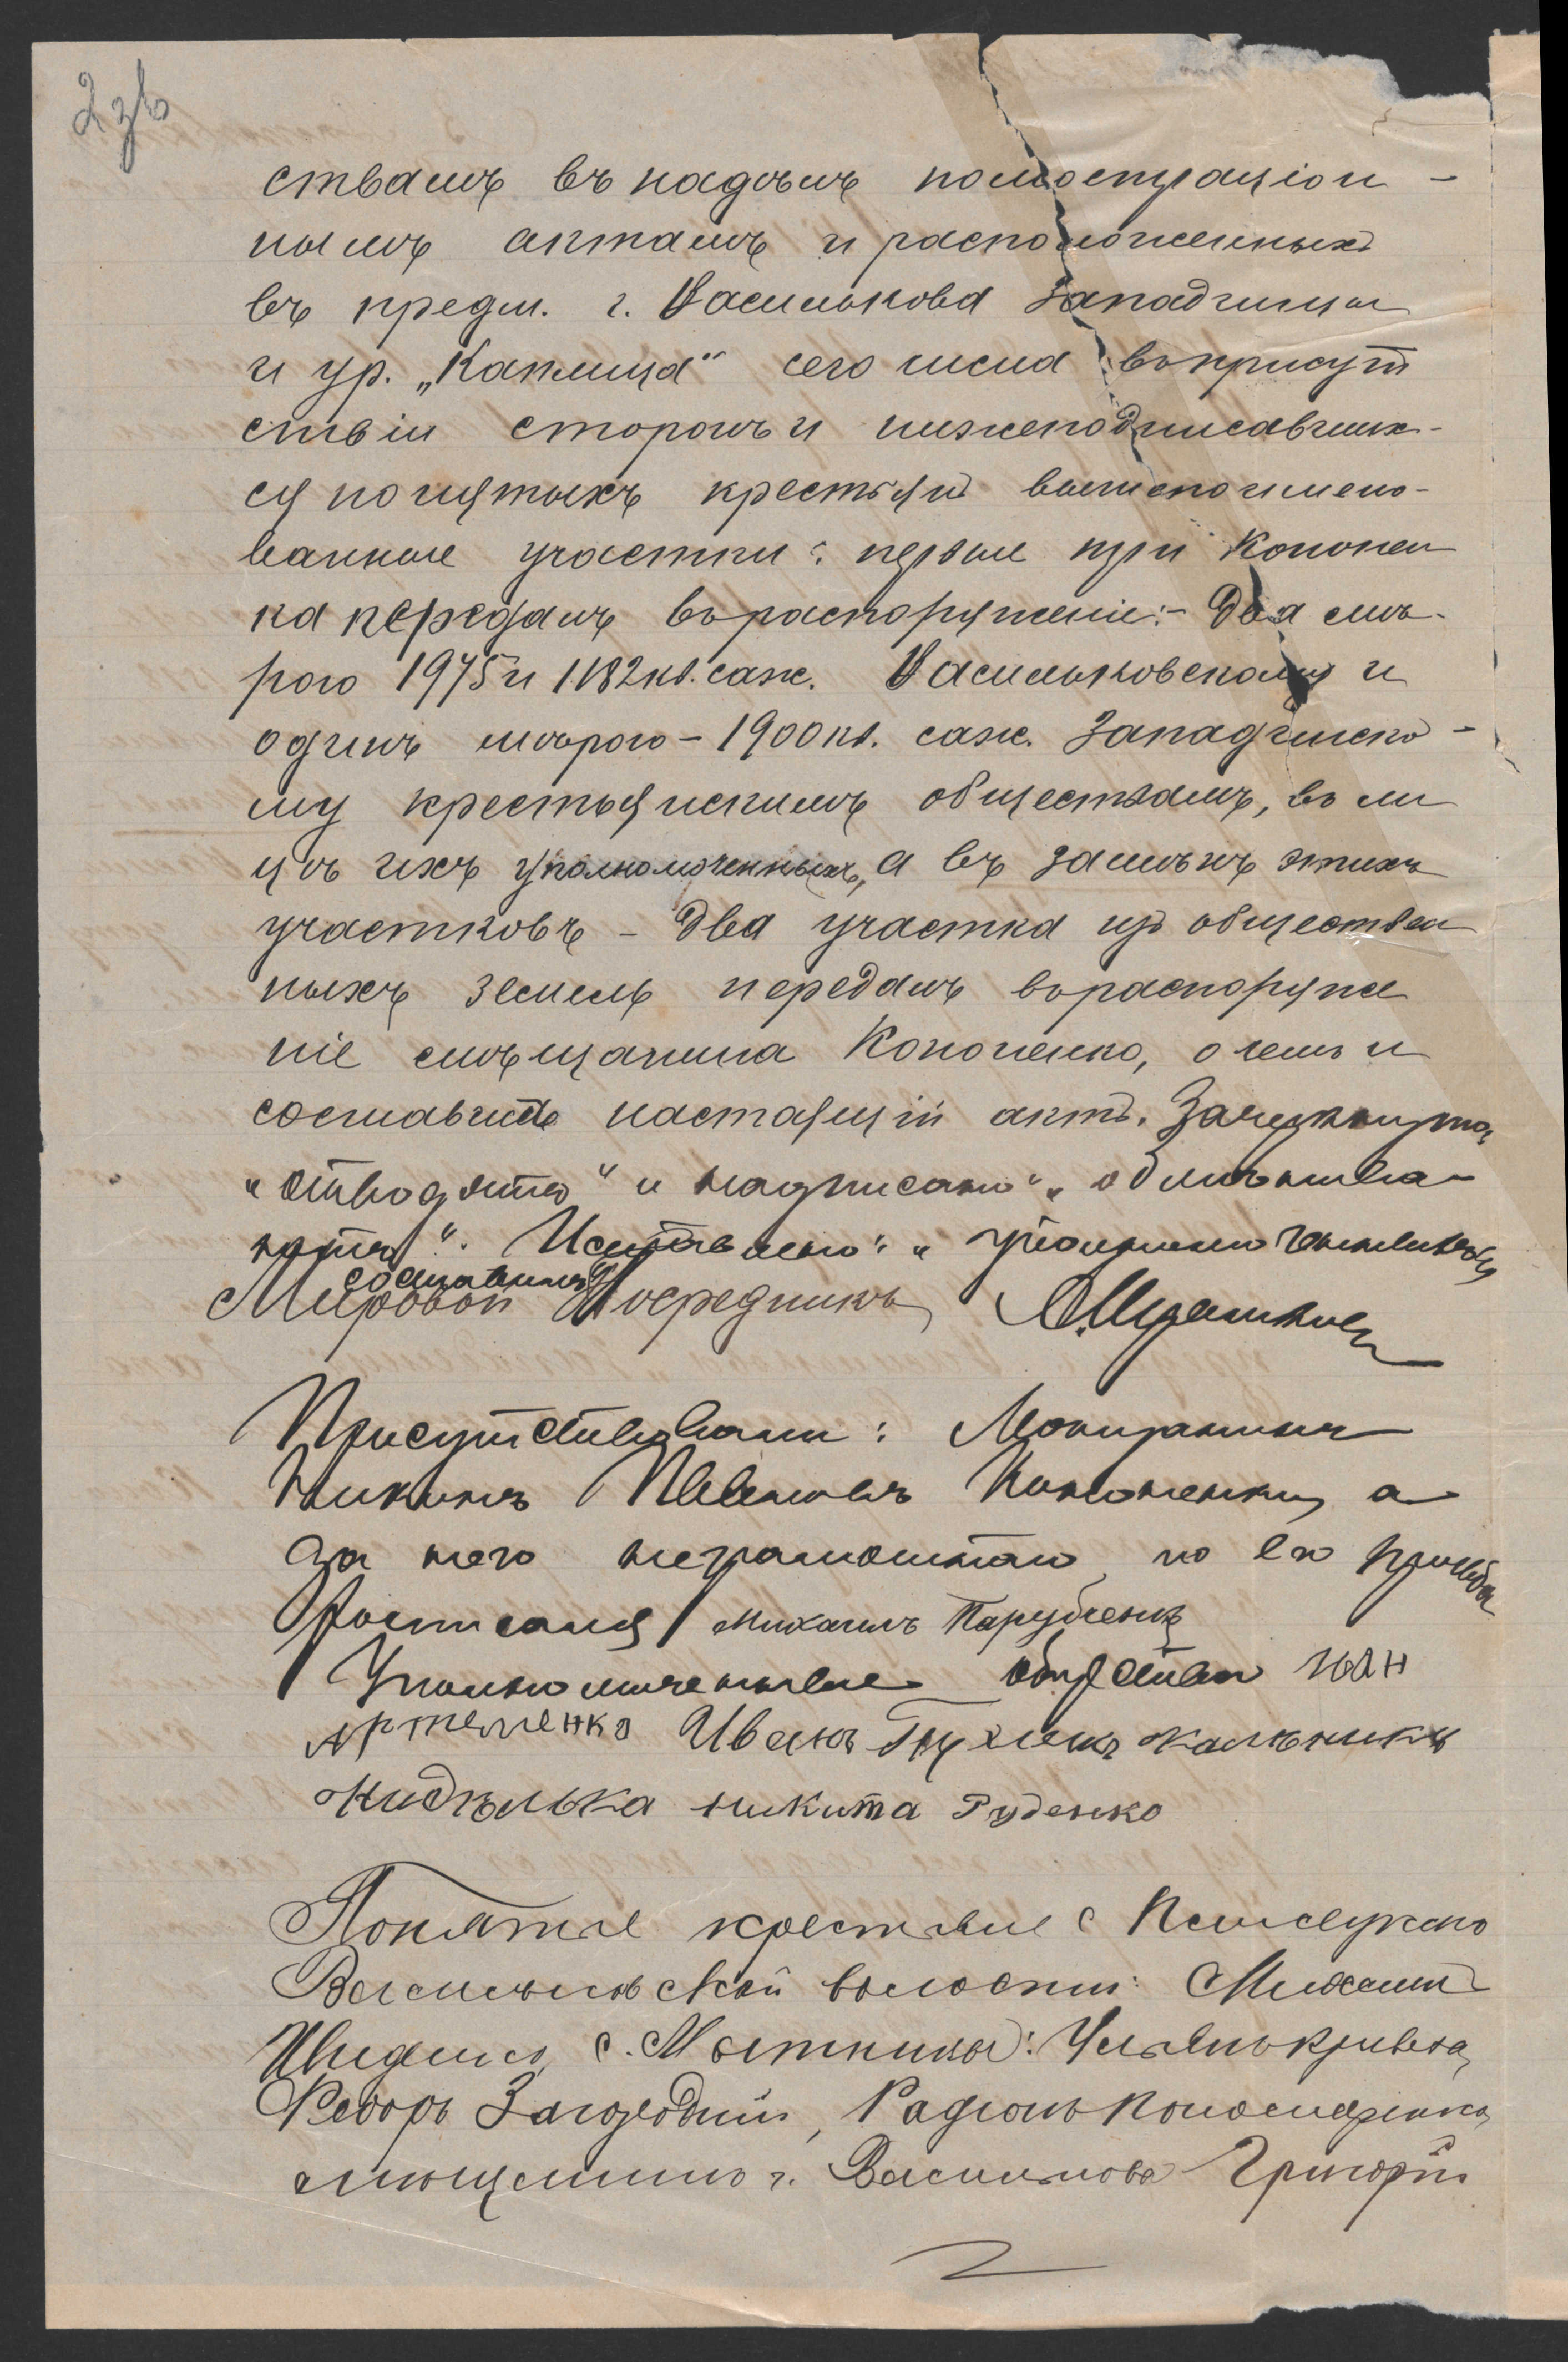 2 зв
ствамъ въ надѣлъ по люстраціон-
нымъ актамъ и расположенныхъ
въ предм. г. Василькова Западинцы
и ур. „Каплица“ сего числа въ присут
ствіи сторонъ и нижеподписавших-
ся понятыхъ крестьянъ вышепоимено-
ванные участки: первые три Кононен
ка передалъ въ распоряженіе:- два мѣ-
рою 1975 и 1182 кв. саж. Васильковскому и
одинъ мѣрою - 1900 кв. саж. Западинско-
му крестьянскимъ обществамъ, въ ли
цѣ ихъ уполномоченныхъ, а въ замѣнъ этихъ
участковъ - два участка изъ обществен
ныхъ земель передалъ въ распоряже
ніе мѣщанина Кононенко, о чемъ и
составилъ настоящій актъ. Зачеркнуто
„отводятъ“ и надписано „обмѣнива-
ютъ“. Исправлено: „уполномоченныхъ
составилъ“
Мировой Посредникъ
Присутствовали:
Кононенко, а
за него неграмотного по его просьбѣ
росписался Михаилъ Парубченко
Уполномоченные общества Іван
Артеменко Иванъ
Нидѣлька никита Руденко
Понятые крестьяне с
Васильковской волости: Михаилъ
с. Мытницы: Ульянъ Кривета,
Федоръ Загородній, Радіонъ Пономаренко,
мѣщанинъ г. Василькова Григорій